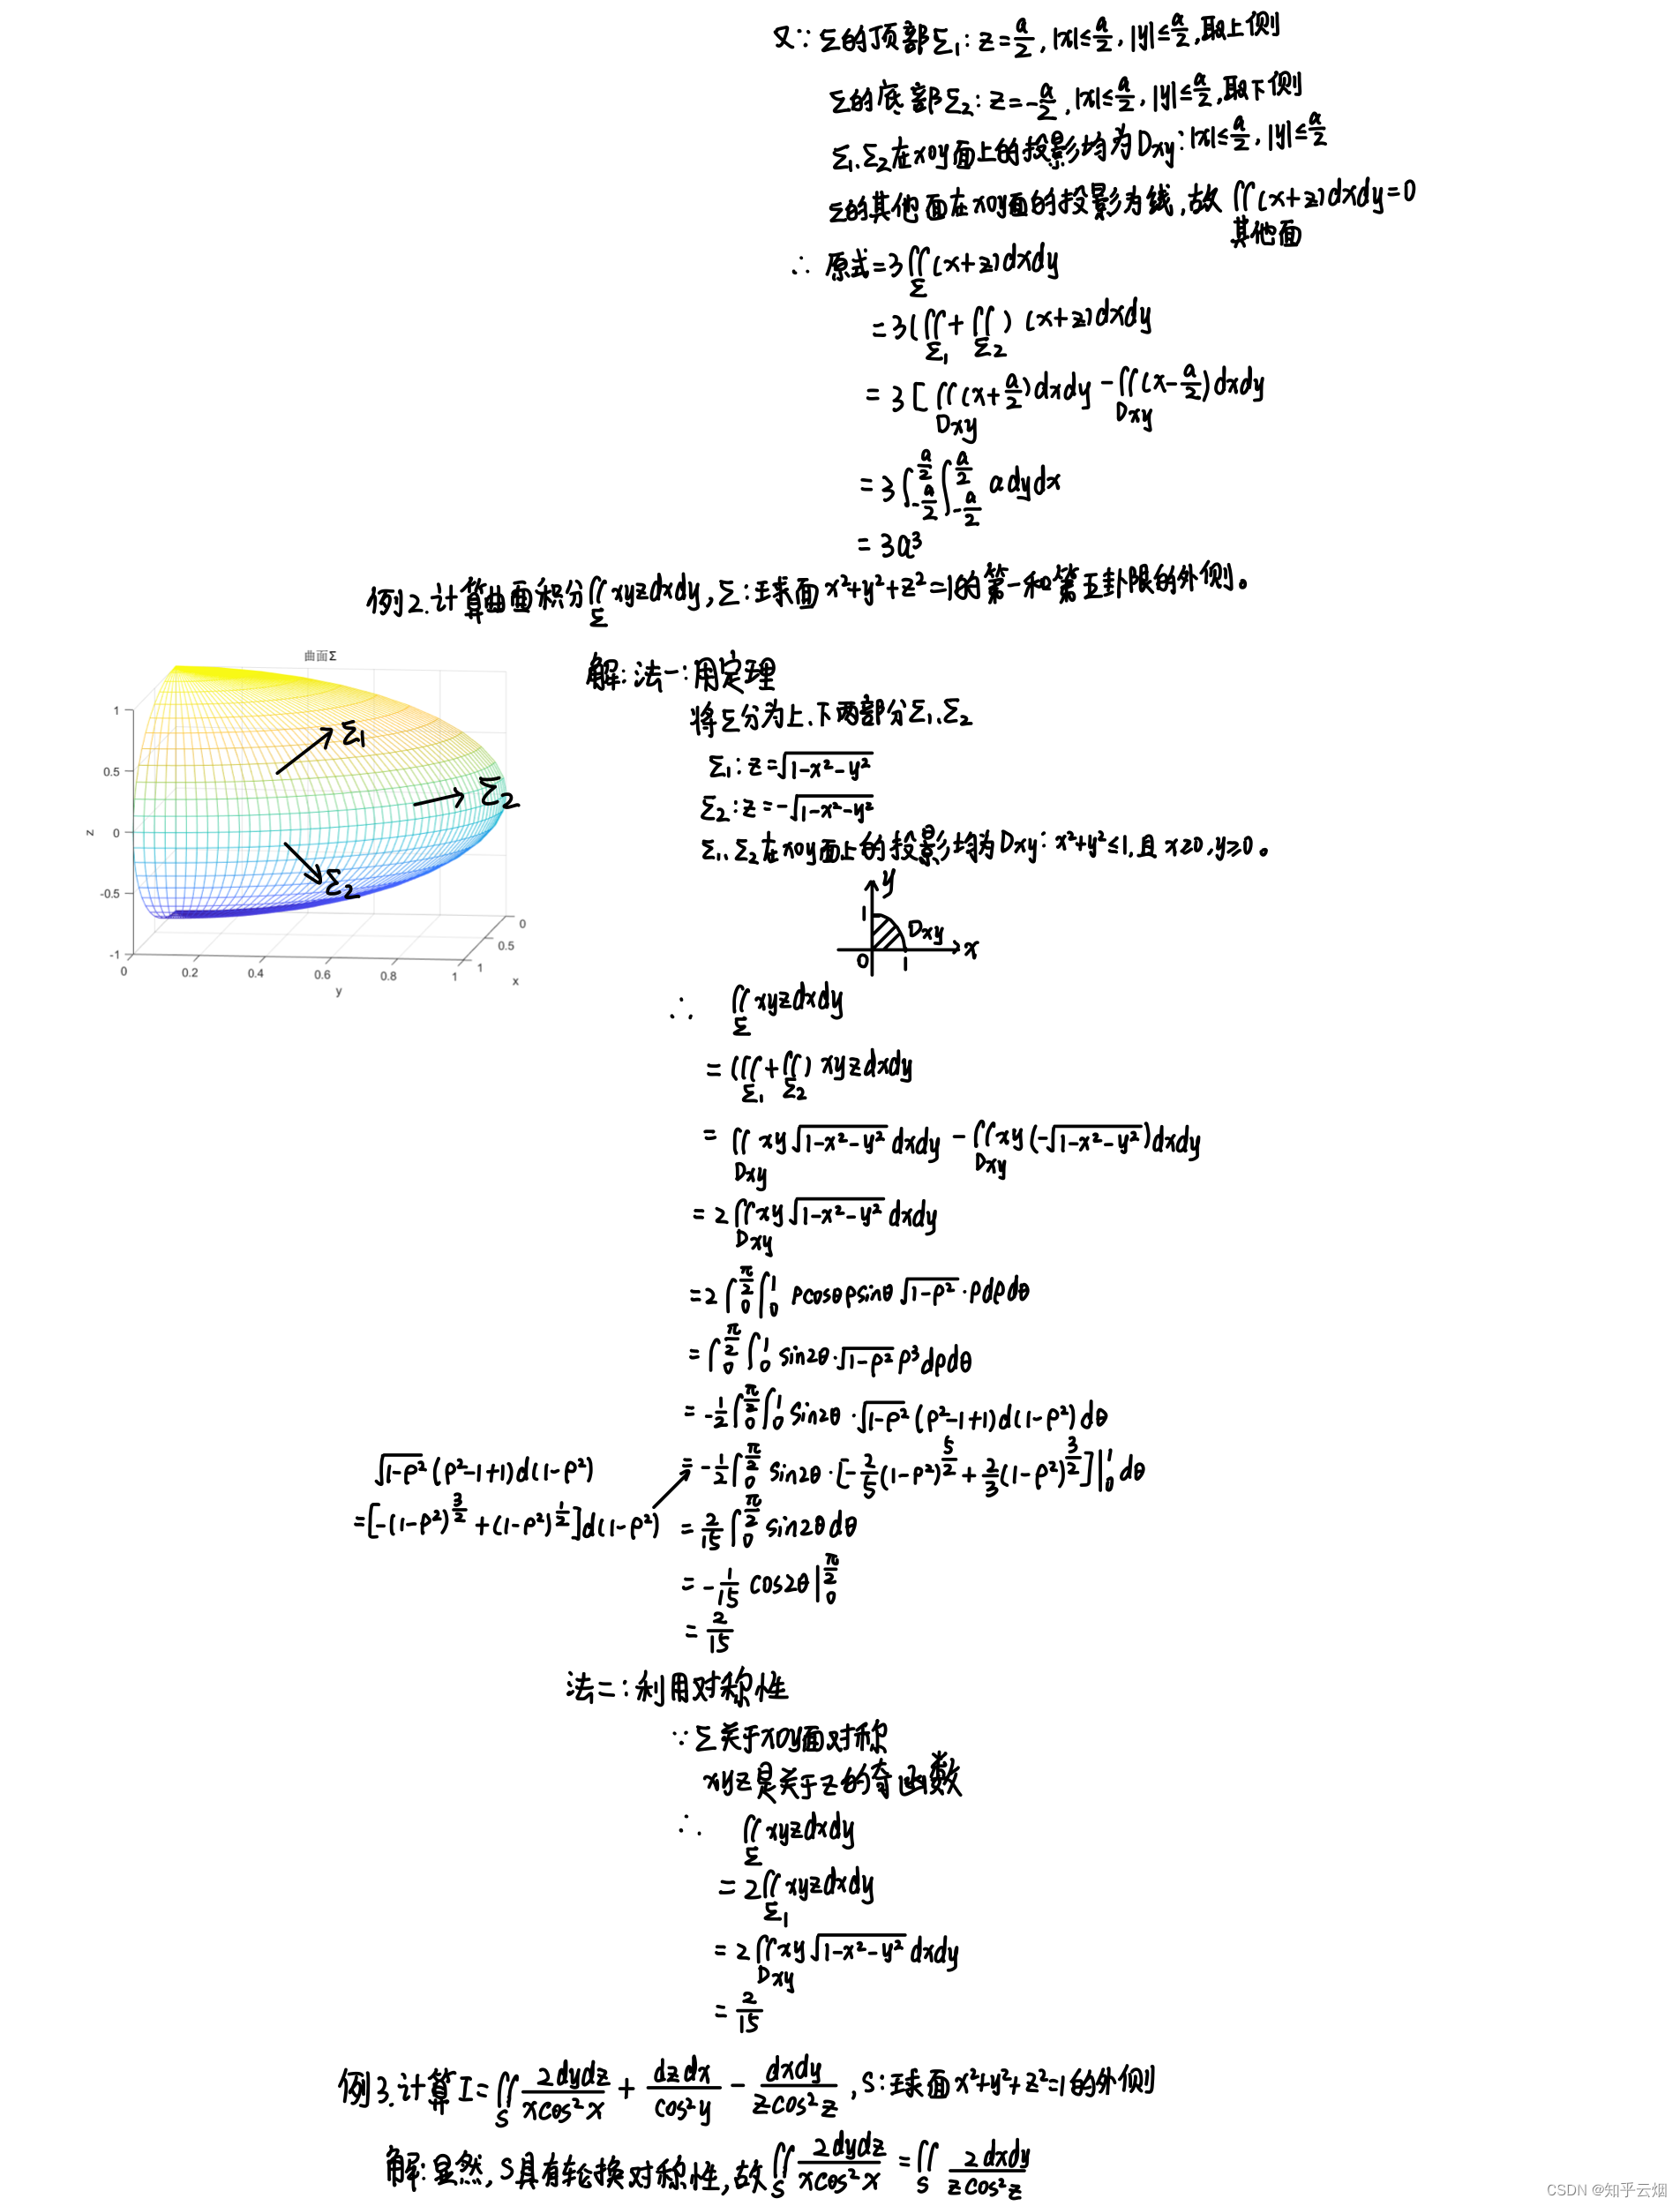 又∵ Σ的顶部Σ₁: z=a/2, |x|≤a/2, |y|≤a/2, 取上侧
Σ的底部Σ₂: z=-a/2, |x|≤a/2, |y|≤a/2, 取下侧
Σ₁、Σ₂在xoy面上的投影均为Dxy: |x|≤a/2, |y|≤a/2
Σ的其他面在xoy面的投影为线, 故∬(x+z)dxdy=0
其他面
∴ 原式=3∬_Σ(x+z)dxdy
=3(∬_Σ₁+∬_Σ₂)(x+z)dxdy
=3[∬_Dxy(x+a/2)dxdy-∬_Dxy(x-a/2)dxdy
=3∫_{-a/2}^{a/2}∫_{-a/2}^{a/2} a dydx
=3a³
例2.计算曲面积分∬_Σ xyzdxdy, Σ:球面x²+y²+z²=1的第一和第五卦限的外侧。
曲面Σ
Σ₁
Σ₂
Σ₂
1
0.5
0
-0.5
-1
z
0
0.2
0.4
0.6
0.8
1
y
0
0.5
1
x
解:法一:用定理
将Σ分为上、下两部分Σ₁、Σ₂
Σ₁: z=√(1-x²-y²)
Σ₂: z=-√(1-x²-y²)
Σ₁、Σ₂在xoy面上的投影均为Dxy: x²+y²≤1, 且x≥0, y≥0。
y
1
Dxy
0 1 x
∴ ∬_Σ xyzdxdy
=(∬_Σ₁+∬_Σ₂)xyzdxdy
=∬_Dxy xy√(1-x²-y²)dxdy-∬_Dxy xy(-√(1-x²-y²))dxdy
=2∬_Dxy xy√(1-x²-y²)dxdy
=2∫_0^{π/2}∫_0^1 ρcosθρsinθ√(1-ρ²)·ρdρdθ
=∫_0^{π/2}∫_0^1 sin2θ·√(1-ρ²)ρ³dρdθ
=-1/2∫_0^{π/2}∫_0^1 sin2θ·√(1-ρ²)(ρ²-1+1)d(1-ρ²)dθ
=-1/2∫_0^{π/2} sin2θ·[-2/5(1-ρ²)^{5/2}+2/3(1-ρ²)^{3/2}]|_0^1 dθ
√(1-ρ²)(ρ²-1+1)d(1-ρ²)
=[-(1-ρ²)^{3/2}+(1-ρ²)^{1/2}]d(1-ρ²)
=2/15∫_0^{π/2} sin2θdθ
=-1/15 cos2θ|_0^{π/2}
=2/15
法二:利用对称性
∵Σ关于xoy面对称
xyz是关于z的奇函数
∴ ∬_Σ xyzdxdy
=2∬_Σ₁ xyzdxdy
=2∬_Dxy xy√(1-x²-y²)dxdy
=2/15
例3.计算I=∬_S 2dydz/(xcos²x)+dzdx/(cos²y)-dxdy/(zcos²z), S:球面x²+y²+z²=1的外侧
解:显然, S具有轮换对称性, 故∬_S 2dydz/(xcos²x)=∬_S 2dxdy/(zcos²z)
CSDN @知乎云烟